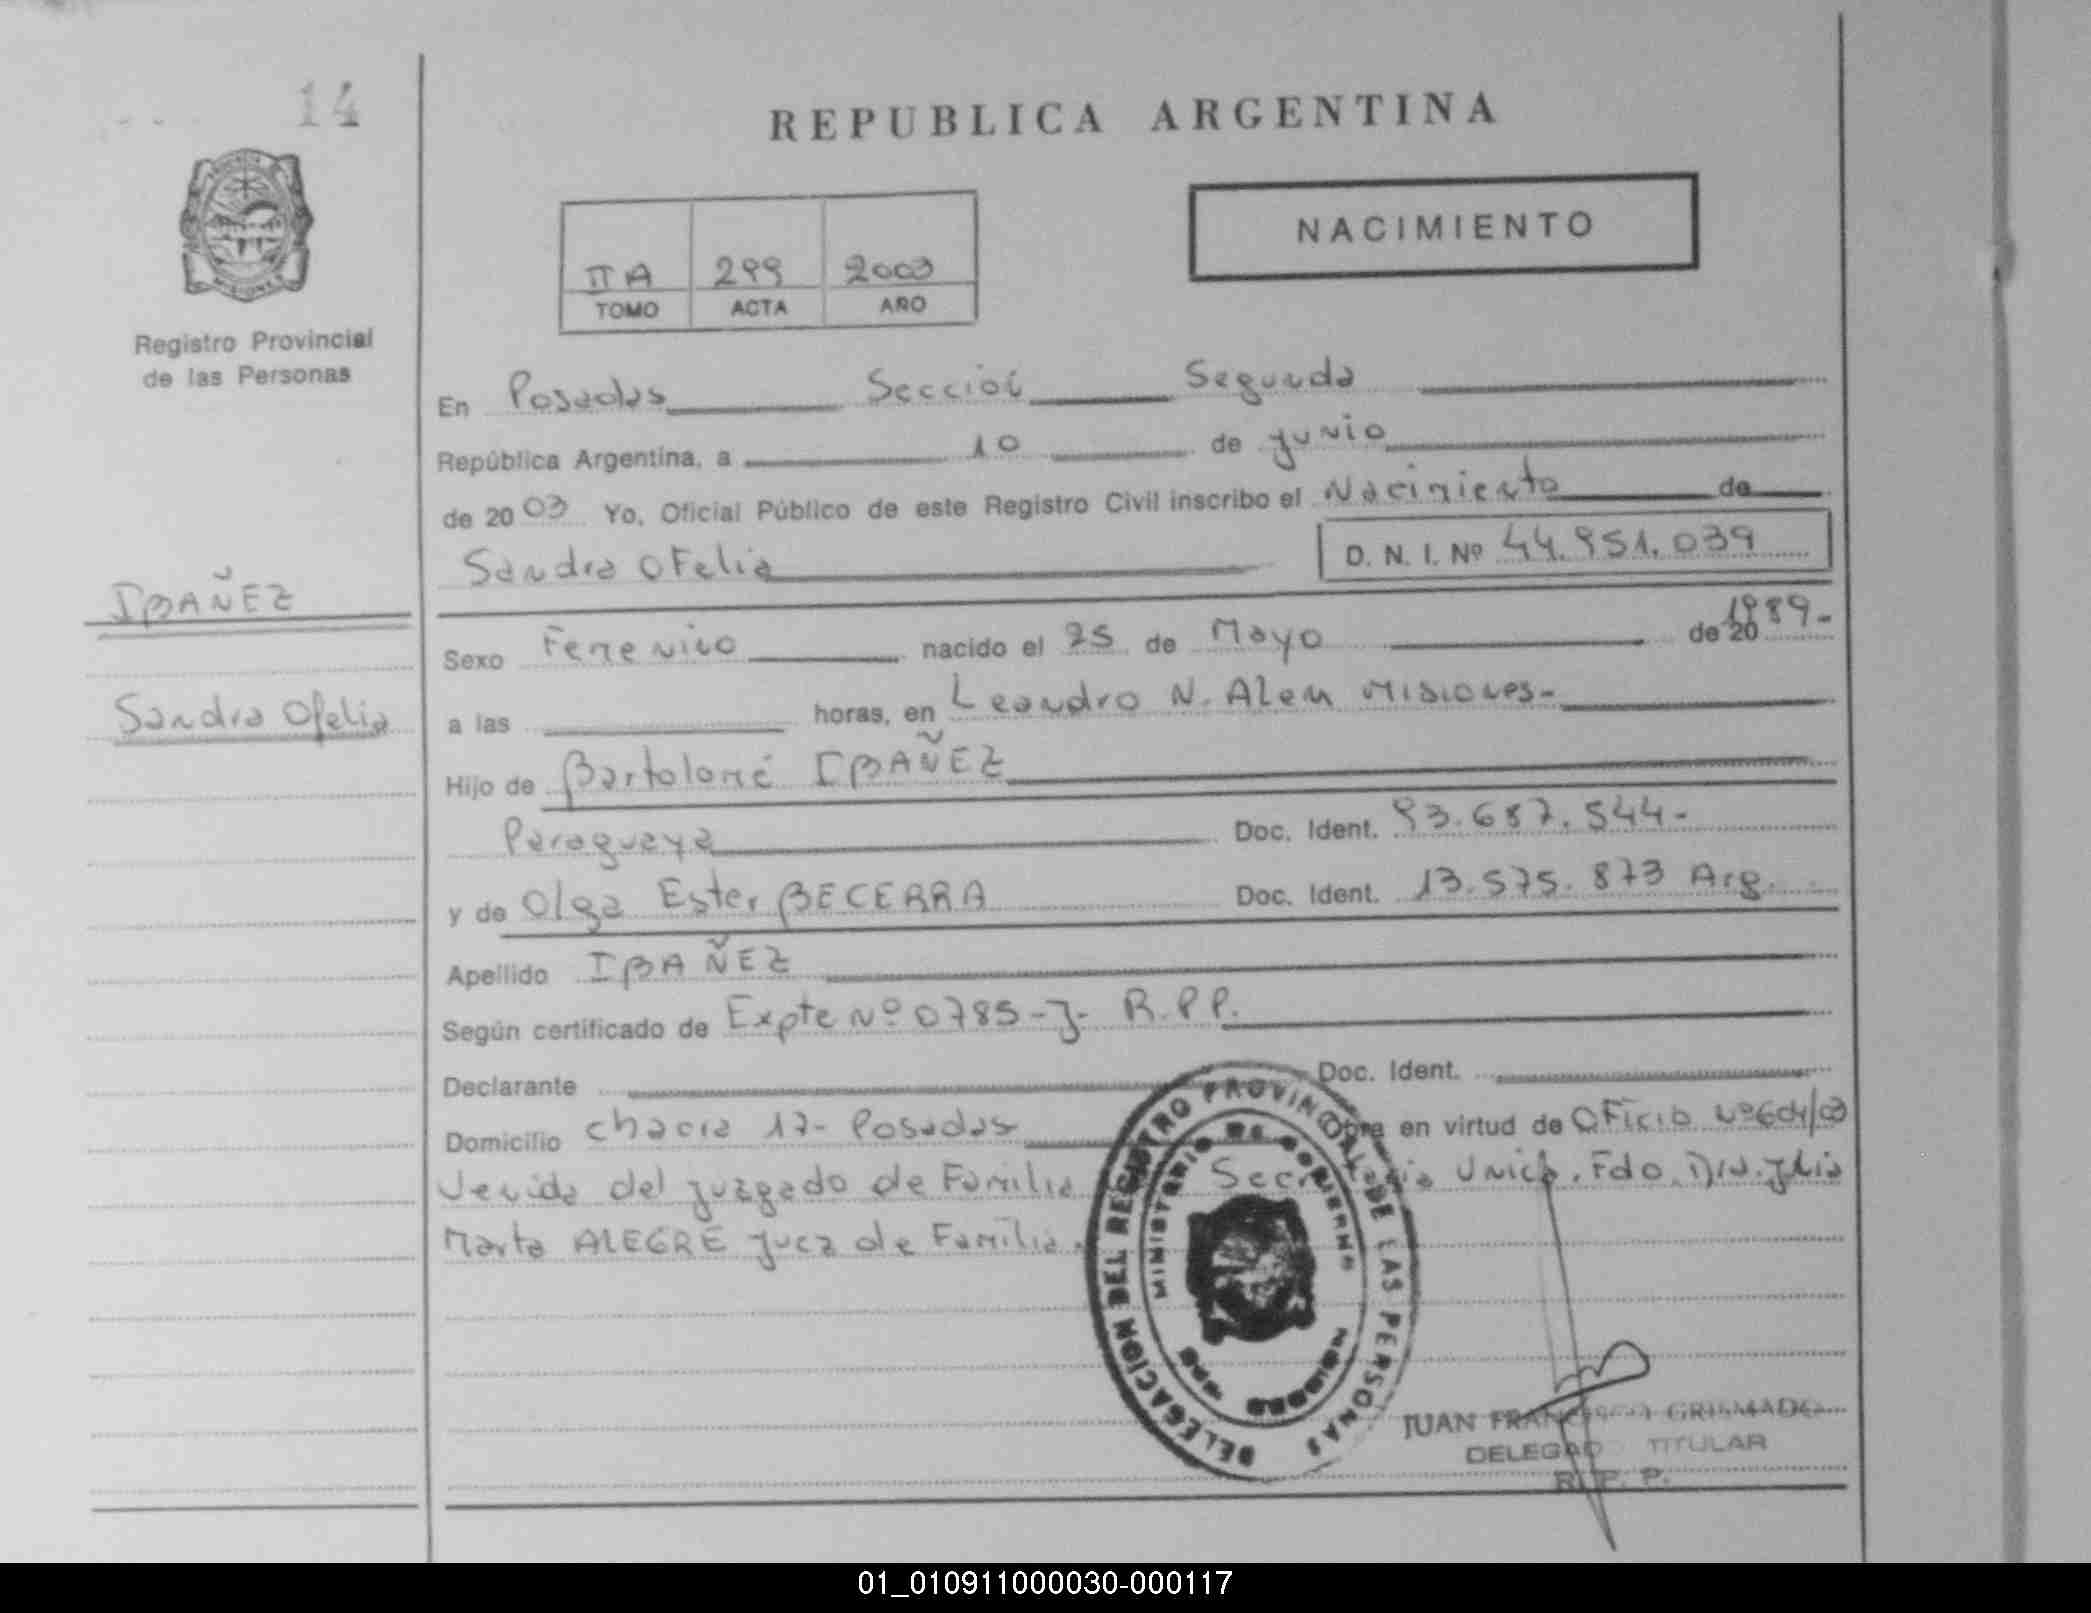 14
REPUBLICA ARGENTINA
NACIMIENTO
II A 299 2003
TOMO ACTA AÑO
Registro Provincial
de las Personas
En Posadas Sección Segunda
República Argentina, a 10 de junio
de 2003 Yo, Oficial Público de este Registro Civil inscribo el Nacimiento de
Sandra Ofelia D. N. I. Nº 44.951.039
IBAÑEZ
Sexo Femenino nacido el 25 de Mayo de 20 1989-
Sandra Ofelia
a las horas, en Leandro N. Alem Misiones-
Hijo de Bartolomé IBAÑEZ
Paraguaya Doc. Ident. 93.687.544-
y de Olga Ester BECERRA Doc. Ident. 13.575.873 Arg.
Apellido IBAÑEZ
Según certificado de Expte Nº 0785-J- R.P.P.
Declarante Doc. Ident.
Domicilio chacra 17- Posadas Obra en virtud de Oficio Nº604/03
Venido del juzgado de Familia Secretaria Unica. Fdo. Julia
Marta ALEGRE Juez de Familia.
DELEGACION DEL REGISTRO PROVINCIAL DE LAS PERSONAS
MINISTERIO DE GOBIERNO
JUAN FRANCISCO GRISMADO
DELEGADO TITULAR
R. P. P.
01_010911000030-000117